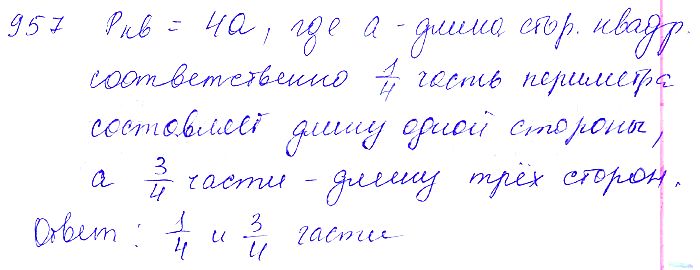 957 Pкв = 4a, где a - длина стор. квадр.
соответственно 1/4 часть периметра
составляет длину одной стороны,
а 3/4 части - длину трёх сторон.
Ответ: 1/4 и 3/4 части